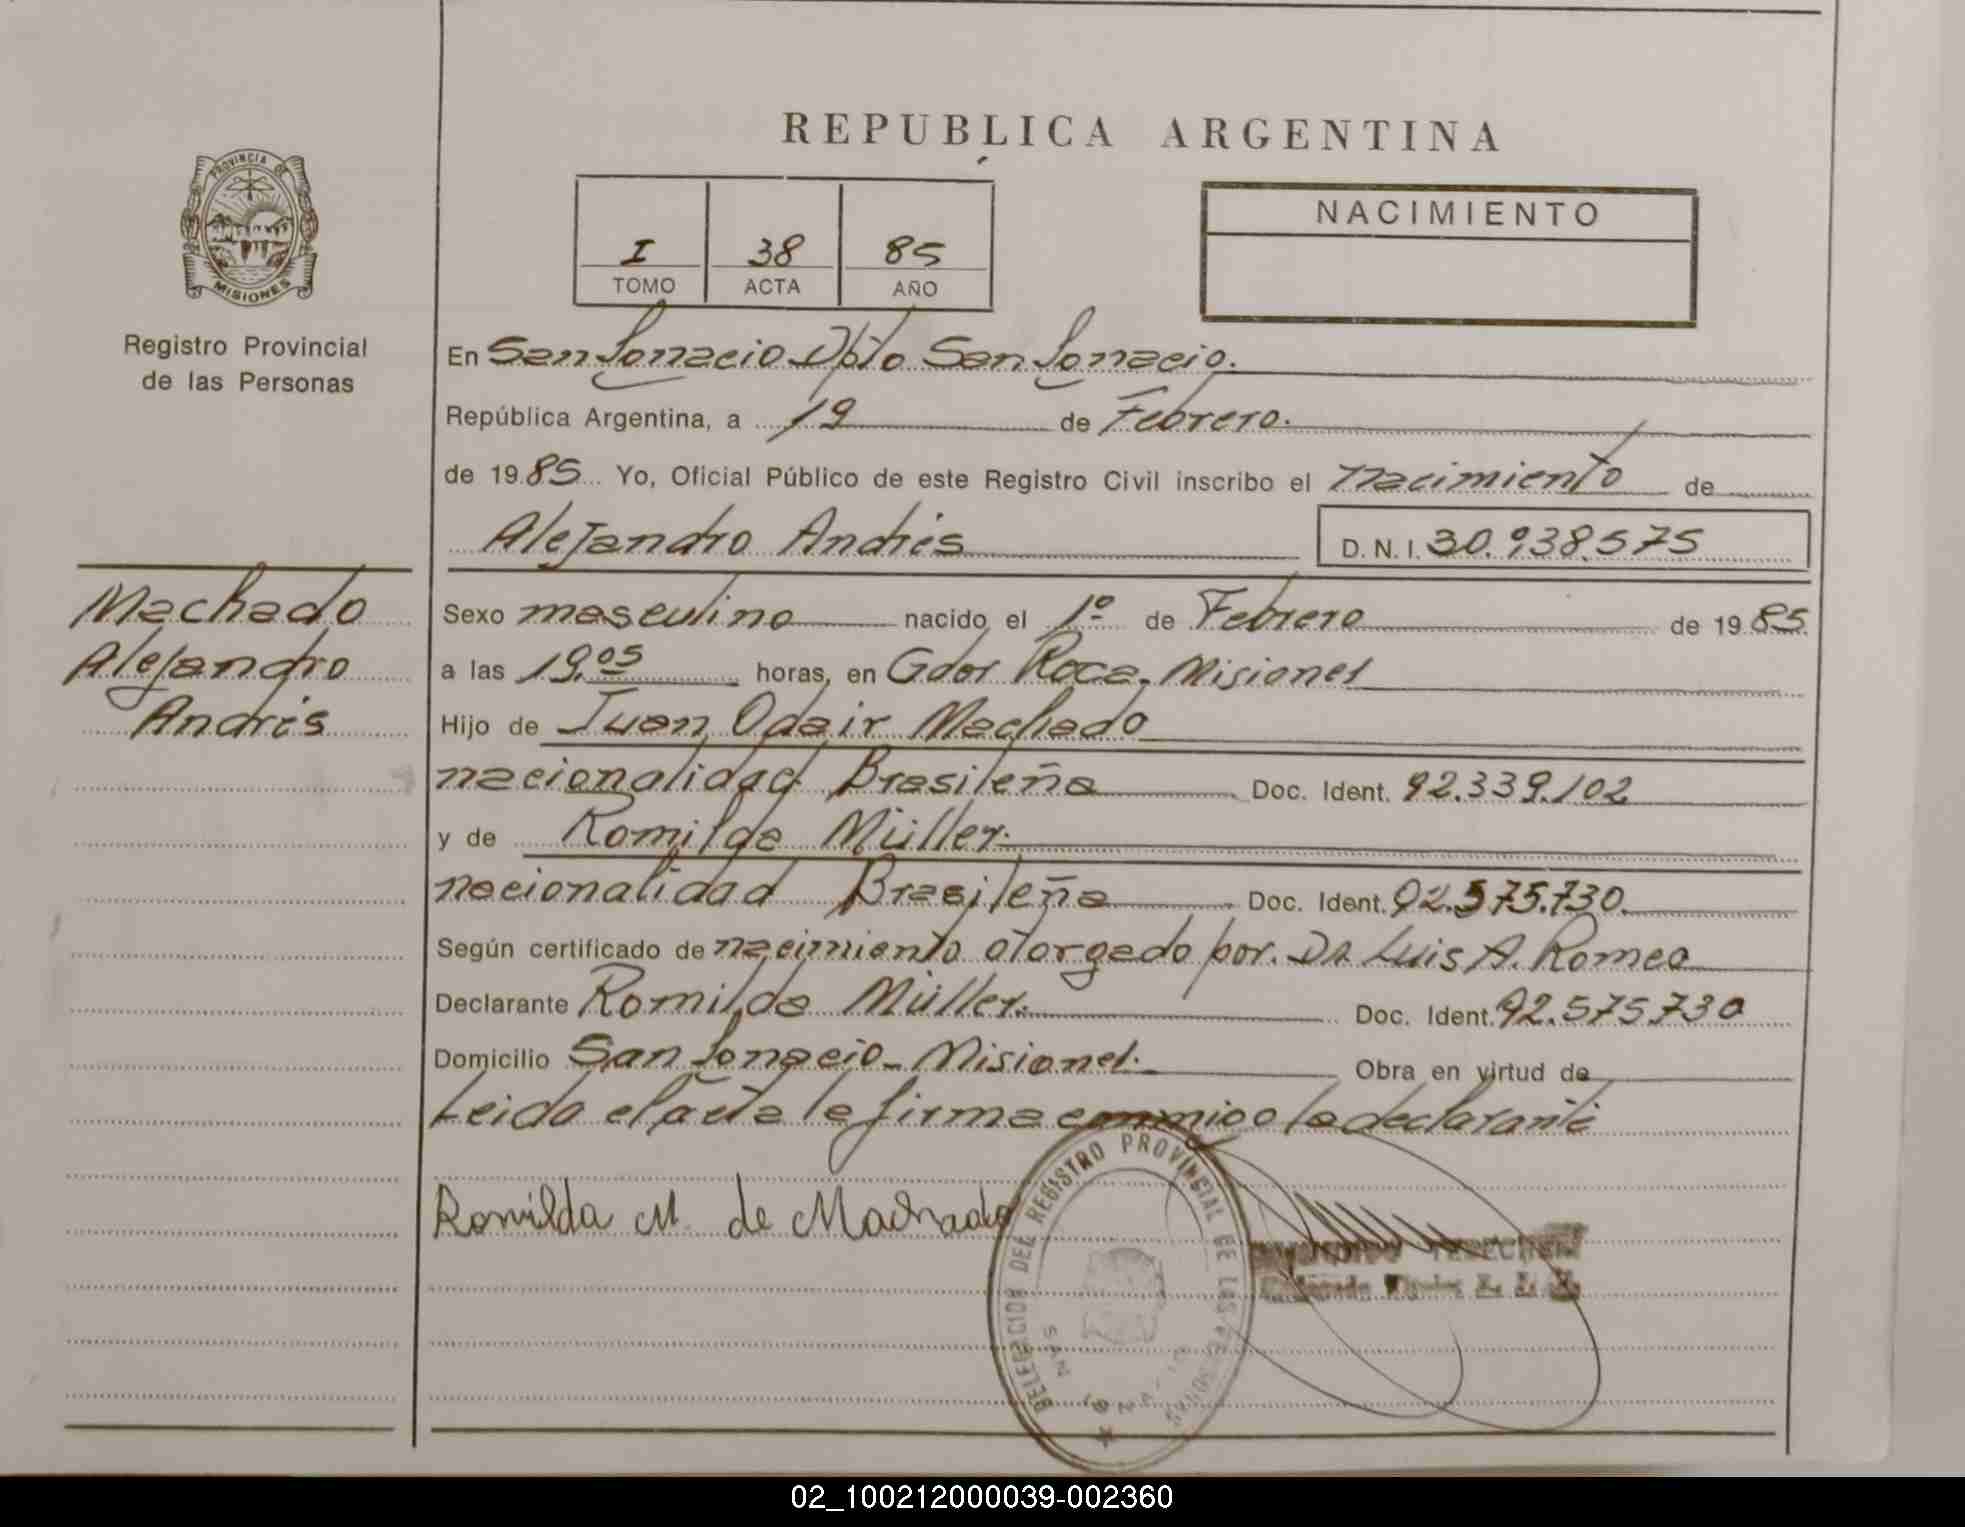 REPUBLICA ARGENTINA
PROVINCIA DE
MISIONES
Registro Provincial
de las Personas
I 38 85
TOMO ACTA AÑO
NACIMIENTO
En San Ignacio Dpto San Ignacio.
República Argentina, a 19 de Febrero.
de 1985 Yo, Oficial Público de este Registro Civil inscribo el nacimiento de
Alejandro Andrés D.N.I. 30.938.575
Machado
Alejandro
Andrés
Sexo masculino nacido el 1º de Febrero de 1985
a las 19,05 horas, en Gdor Roca. Misiones
Hijo de Juan Odair Machado
nacionalidad Brasileña Doc. Ident. 92.339.102
y de Romilda Müller.
nacionalidad Brasileña Doc. Ident. 92.575.730.
Según certificado de nacimiento otorgado por. Dr Luis A. Romeo
Declarante Romilda Müller. Doc. Ident. 92.575.730
Domicilio San Ignacio - Misiones. Obra en virtud de
Leida el acta la firma conmigo la declarante
Romilda M. de Machado
DELEGACION DEL REGISTRO PROVINCIAL DE LAS PERSONAS
SAN
02_100212000039-002360